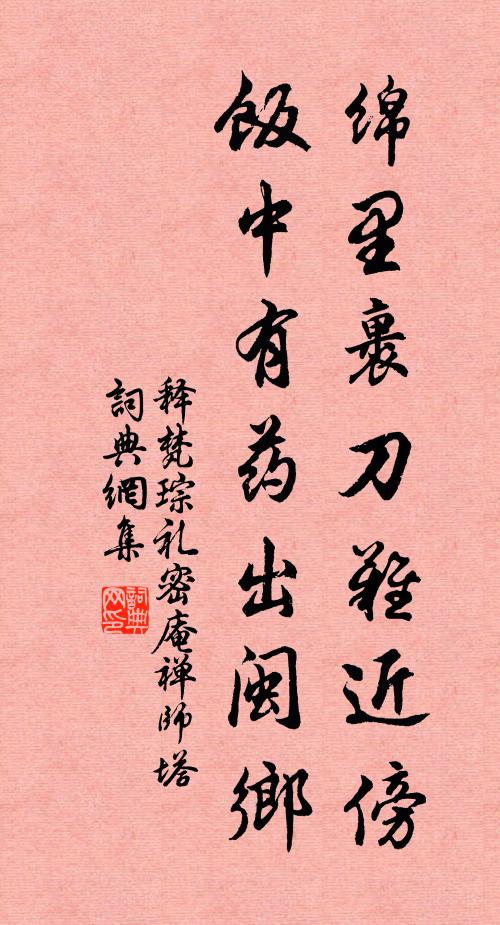 绵里裹刀难近傍
饭中有药出闽鄉
释梵琮礼密庵禅師塔
詞典網集
詞典网印